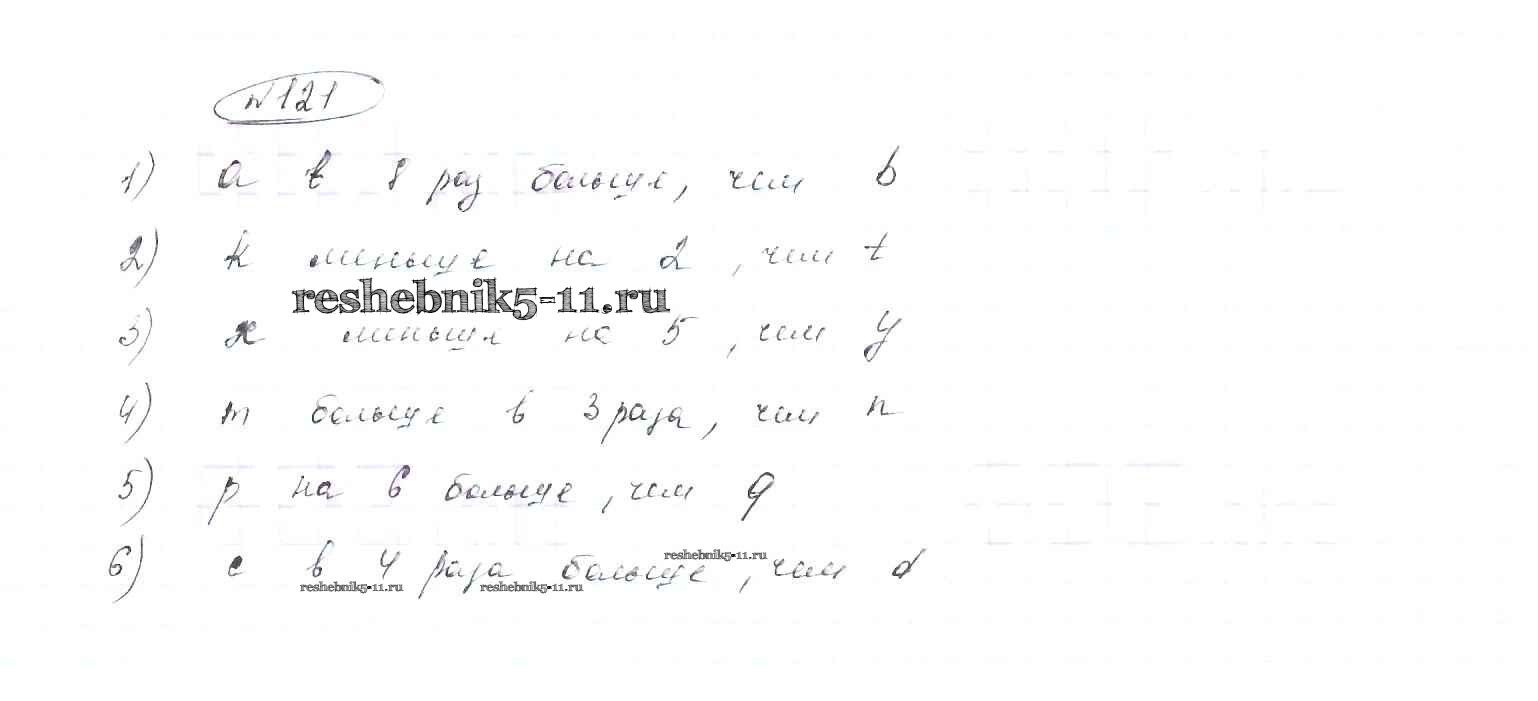 №121
1) a в 8 раз больше, чем b
2) k меньше на 2, чем t
reshebnik5-11.ru
3) x меньше на 5, чем y
4) m больше в 3 раза, чем n
5) p на 6 больше, чем q
6) c в 4 раза больше, чем d
reshebnik5-11.ru
reshebnik5-11.ru reshebnik5-11.ru